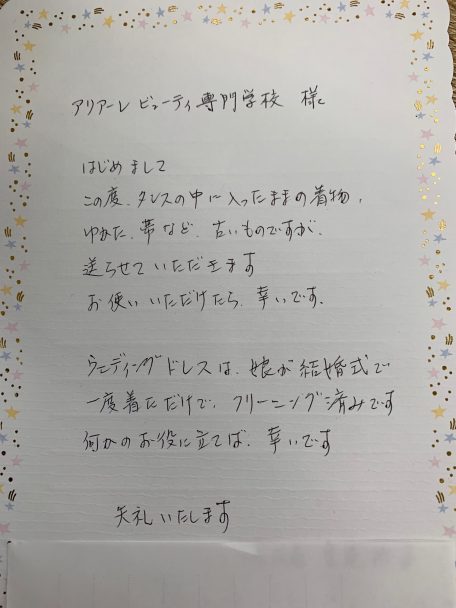 アリアーレ ビューティ専門学校 様
はじめまして
この度、タンスの中に入ったままの着物、
ゆかた、帯など、古いものですが、
送らせていただきます
お使いいただけたら、幸いです。
ウェディングドレスは、娘が結婚式で
一度着ただけで、クリーニング済みです
何かのお役に立てば、幸いです
失礼いたします